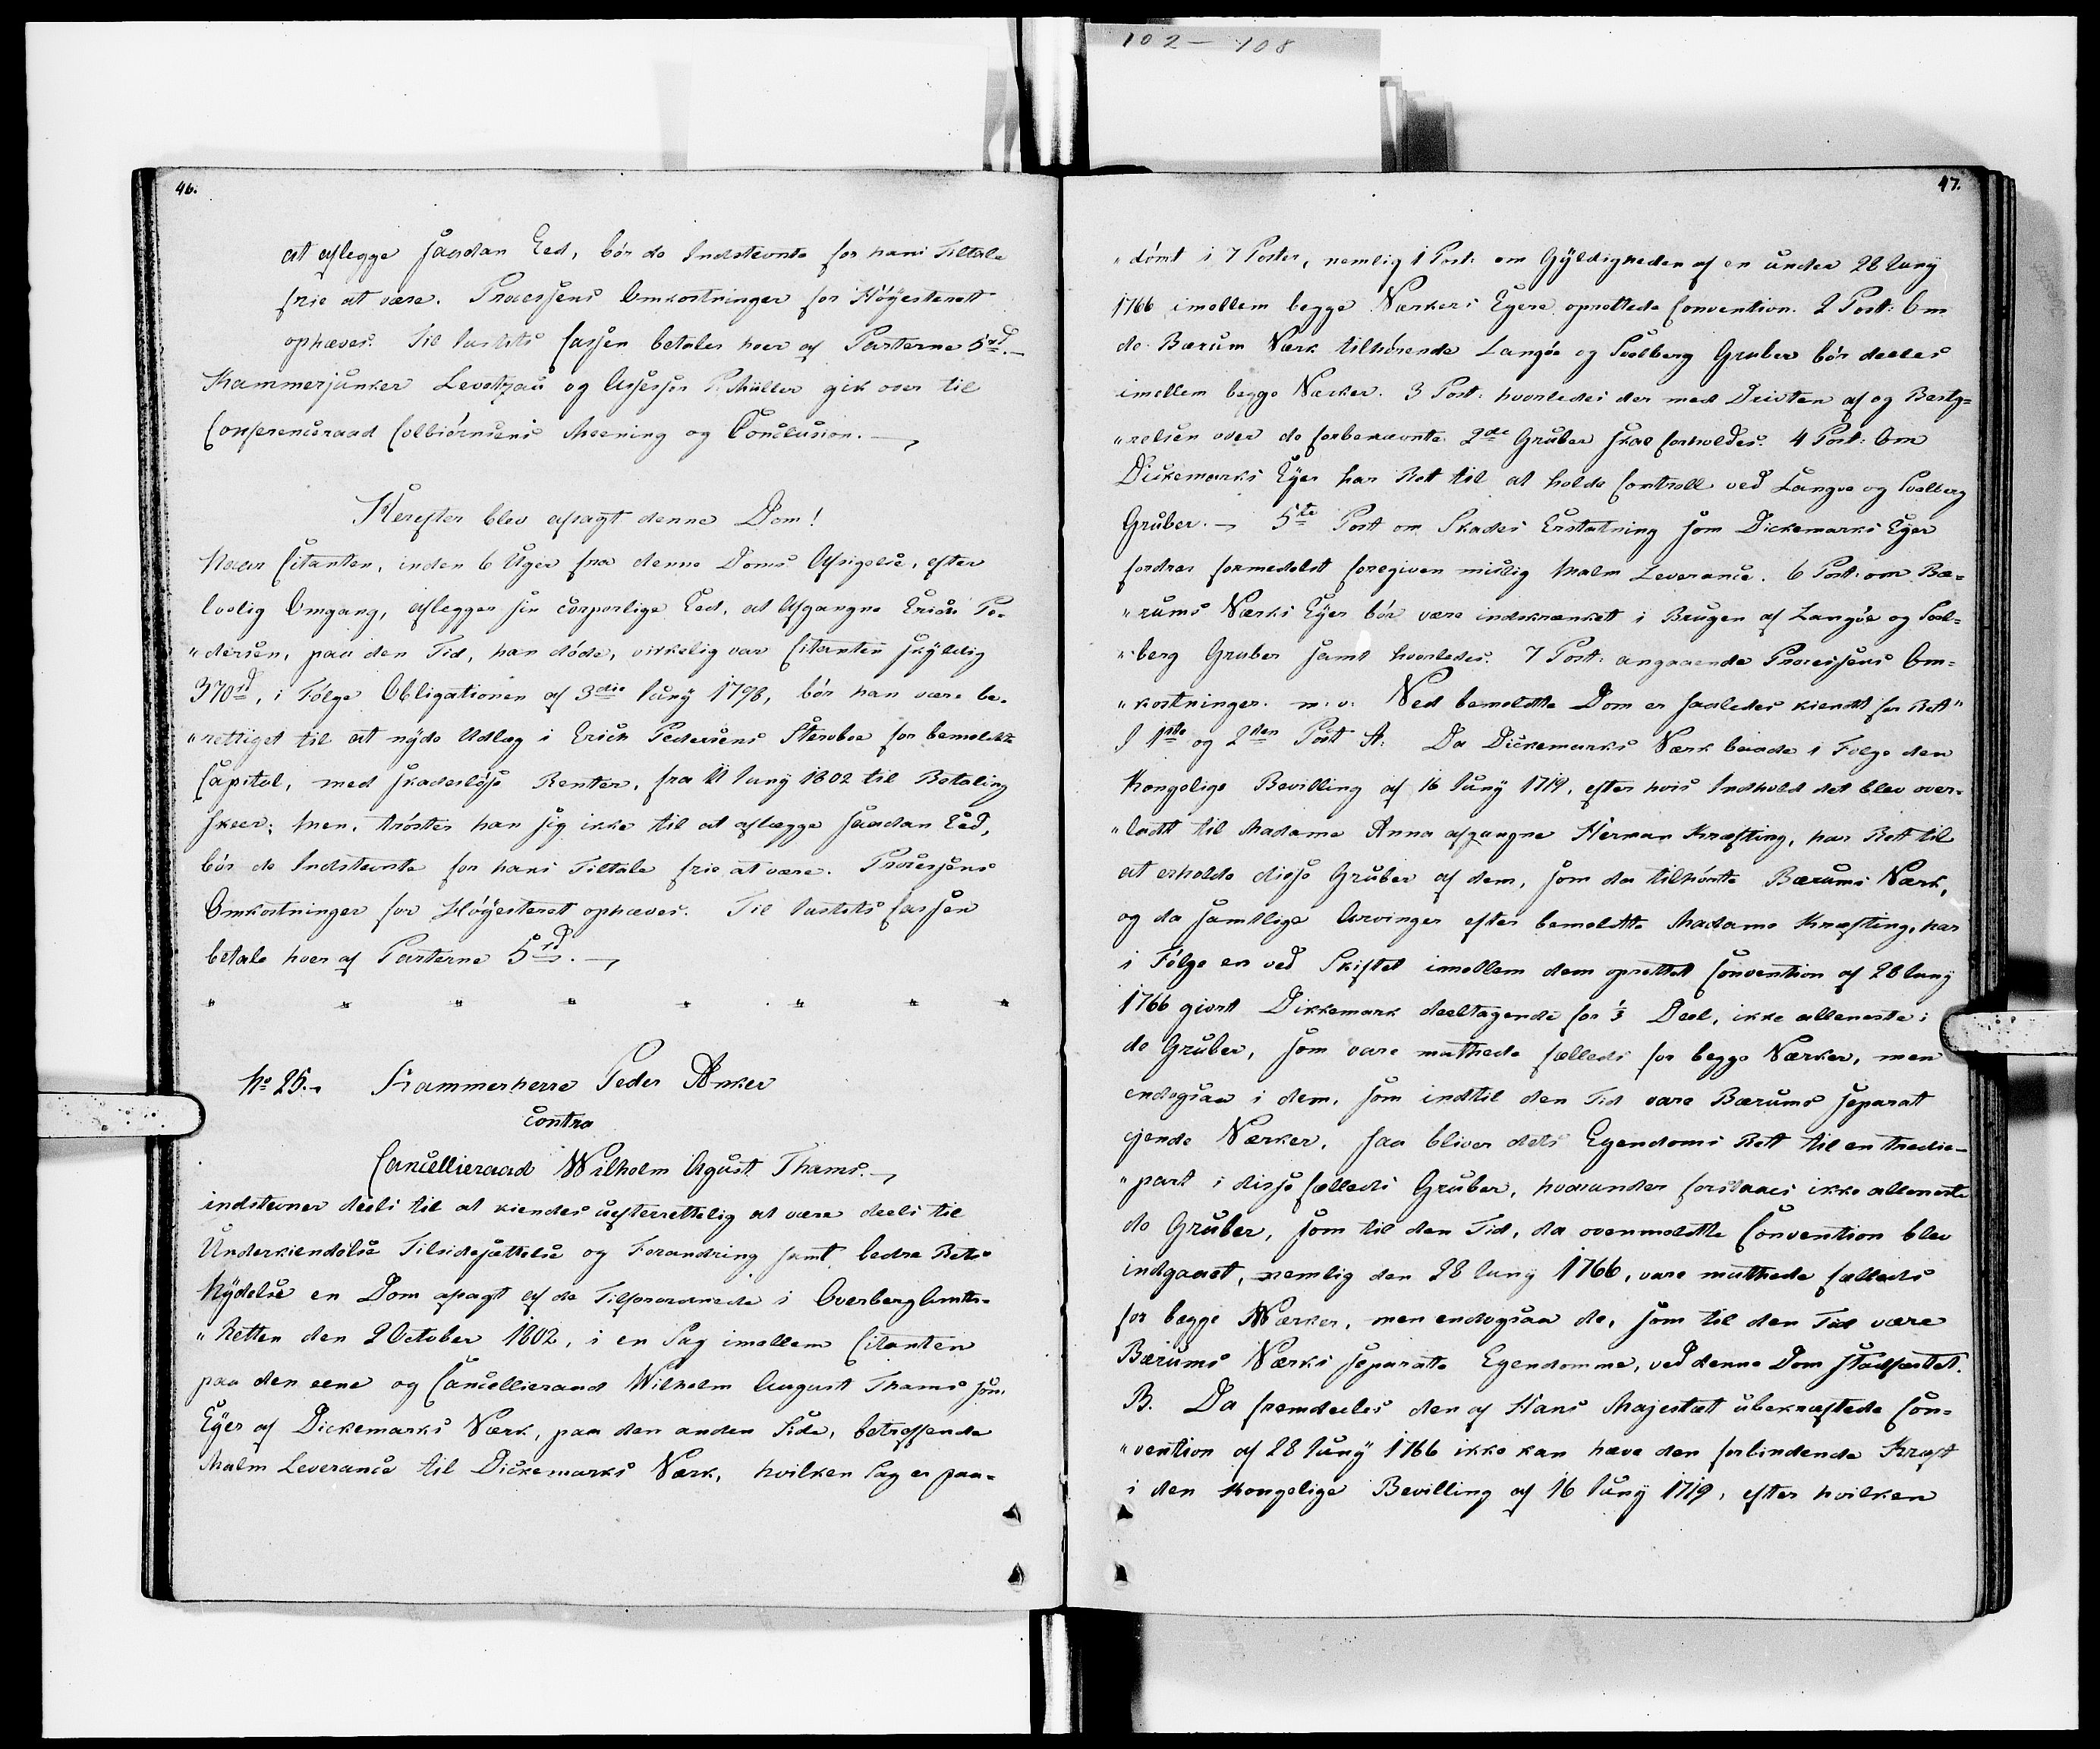 102 – 108
46.
at aflegge saadan Eed, bör de Indstevnte for hans Tiltale
frie at være. Processens Omkostninger for Höyesterett
ophæves. Til Justits Cassen betaler hver af Parterne 5 rd.
Kammerjunker Levetzau og Assessor P. Müller gik over til
Conferenceraad Colbiörnsens Meening og Conclusion.
Herefter blev afsagt denne Dom!
Naar Citanten, inden 6 Uger fra denne Doms Afsigelse, efter
lovlig Omgang, aflegger sin corporlige Eed, at Afgangne Erich Pe-
"dersen, paa den Tid, han döde, virkelig var Citanten skyldig
370 rd, i Fölge Obligationen af 3die Juny 1798, bör han være be-
"rettiget til at nyde Udlæg i Erich Pedersens Sterboe for bemeldte
Capital, med skadeslöse Renter, fra 11 Juny 1802 til Betaling
skeer; Men, tröster han sig ikke til at aflægge saadan Eed,
bör de Indstevnte for hans Tiltale frie at være. Processens
Omkostninger for Höyesteret ophæves. Til Justits Cassen
betale hver af Parterne 5 rd.
" " " " " " " "
No 25. Kammerherre Peder Anker
contra
Cancellieraad Wilhelm Agust Thams.
indstevner deels til at kiendes uefterrettelig at være deels til
Underkiendelse Tilsidesættelse og Forandring samt bedre Rets
Nydelse en Dom afsagt af de Tilforordnede i Overbergamts-
"Retten den 2 October 1802, i en Sag imellem Citanten
paa den eene og Cancellieraad Wilhelm August Thams som
Eyer af Dickemarks Værk, paa den anden Side, betreffende
Malm Leverance til Dickemarks Værk, hvilken Sag er paa-
47.
"dömt i 7 Poster, nemlig 1 Post: om Gyldigheden af en under 28 Juny
1766 imellem begge Værkers Eyere oprettede Convention. 2 Post: Om
de Bærum Værk tilhörende Langöe og Soelberg Gruber bör deeles
imellem begge Værker. 3 Post: hvorledes der med Drivten af og Besty-
"relsen over de forbenævnte 2de Gruber skal forholdes. 4 Post: Om
Dickemarks Eyer har Ret til at holde Controll ved Langöe og Soelberg
Gruber. 5te Post om Skades Erstatning som Dickemarks Eyer
fordrer formedelst foregiven mislig Malm Leverance. 6 Post: om Bæ-
"rums Værks Eyer bör være indskrænket i Brugen af Langöe og Soel-
"berg Gruber samt hvorledes. 7 Post: angaaende Processens Om-
"kostninger. m: v: Ved bemeldte Dom er saaledes kiendt for Ret"
I 1ste og 2den Post A: Da Dickemarks Værk baade i Fölge den
Kongelige Bevilling af 16 Juny 1719, efter hvis Indhold det blev over-
"ladt til Madame Anna afgangne Herman Kræfting, har Ret til
at erholde disse Gruber af dem, som da tilhörte Bærums Værk,
og da samtlige Arvinger efter bemeldte Madame Kræfting, har
i Fölge en ved Skiftet imellem dem oprettet Convention af 28 Juny
1766 giort Dikkemark deeltagende for 1/3 Deel, ikke alleneste i
de Gruber, som vare muthede fælleds for begge Værker, men
endogsaa i dem, som indtil den Tid vare Bærums separatt
ejende Værker, saa bliver dets Egendoms Ret til en tredie-
"part i disse fælleds Gruber, hvorunder forstaaes ikke alleneste
de Gruber, som til den Tid, da ovenmeldte Convention blev
indgaaet, nemlig den 28 Juny 1766, vare muthede fælleds
for begge Værker, men endogsaa de, som til den Tid være
Bærums Værks separate Egendomme, ved denne Dom stadfæstet.
B. Da fremdeeles den af Hans Majestæt ubekræftede Con-
"vention af 28 Juny 1766 ikke kan hæve den forbindende Kraft
i den Kongelige Bevilling af 16 Juny 1719, efter hvilken